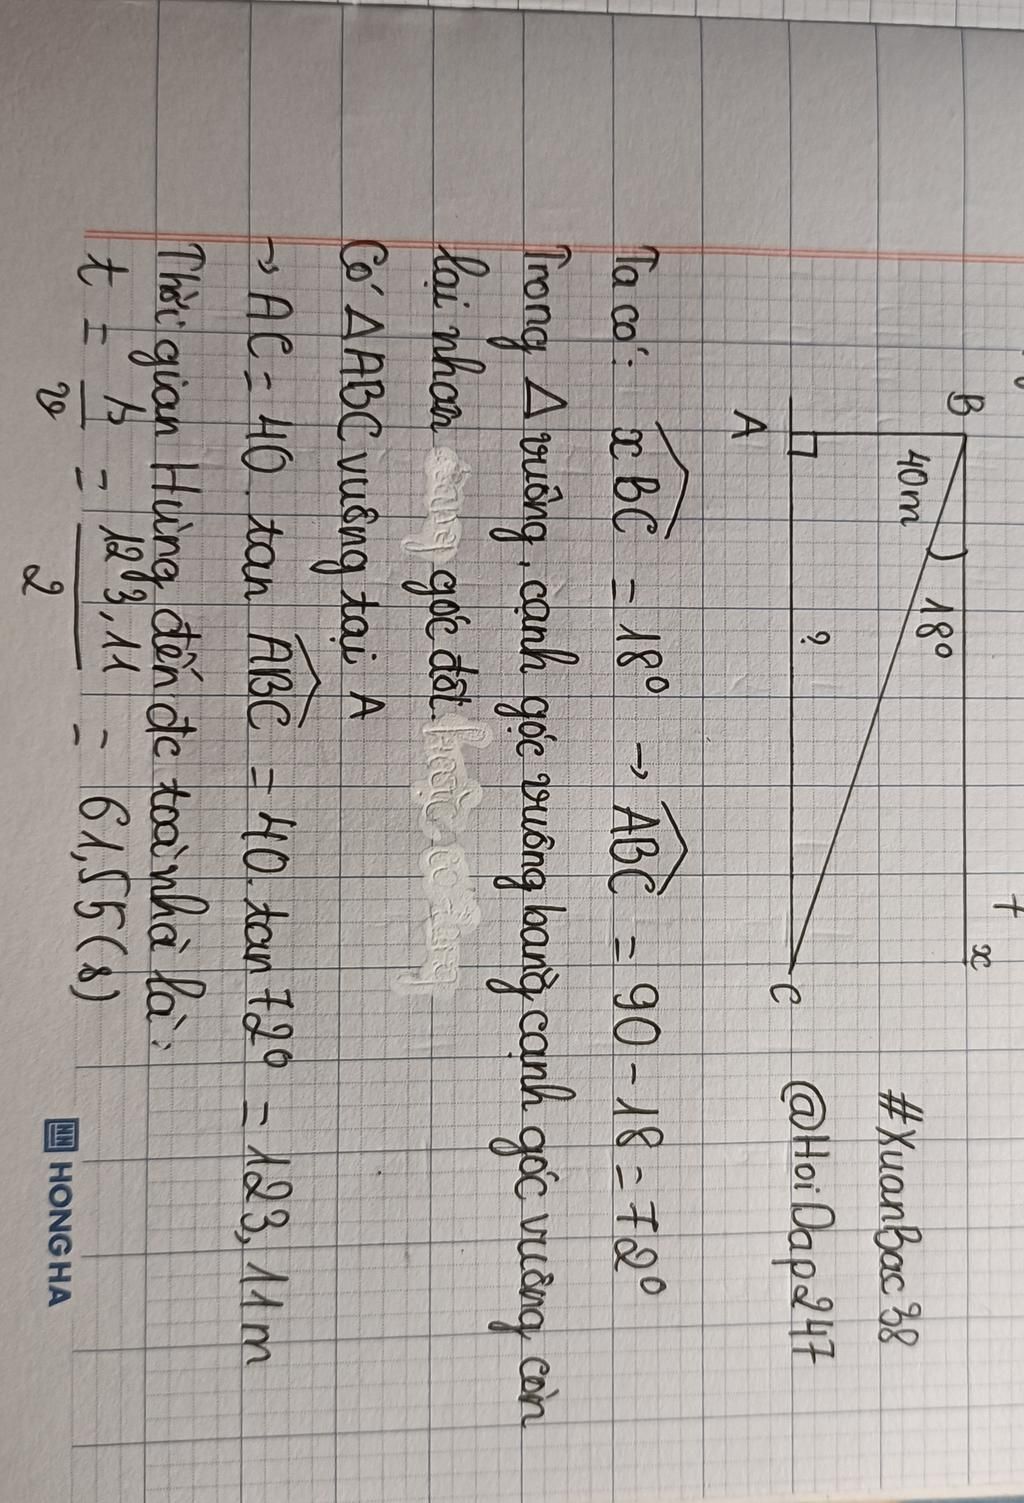 B
x
40m
18°
#XuanBac38
A
?
C
@HoiDap247
Ta có: xBC = 18° → ABC = 90 - 18 = 72°
Trong Δ vuông, cạnh góc vuông bằng cạnh góc vuông còn
lại nhân góc đối
Có ΔABC vuông tại A
→ AC = 40. tan ABC = 40. tan 72° = 123,11m
Thời gian Hùng đến đc toà nhà là:
t = s/v = 123,11/2 = 61,55(s)
HONG HA